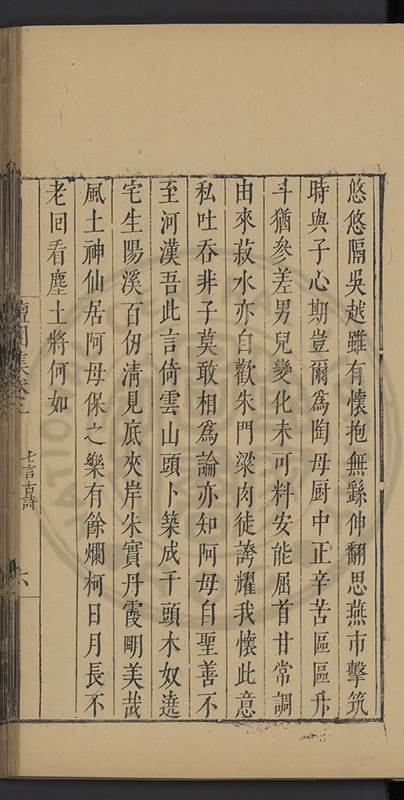 悠悠隔吳越雖有懷抱無繇伸翻思燕市擊筑
時與子心期豈爾為陶母厨中正辛苦區區升
斗猶參差男兒變化未可料安能屈首甘常調
由來菽水亦自歡朱門粱肉徒誇耀我懷此意
私吐吞非子莫敢相為論亦知阿母自聖善不
至河漢吾此言倚雲山頭卜築成千頭木奴遶
宅生陽溪百仞清見底夾岸朱實丹霞明美哉
風土神仙居阿母保之樂有餘爛柯日月長不
老回看塵土將何如
集卷之
七言古詩
六